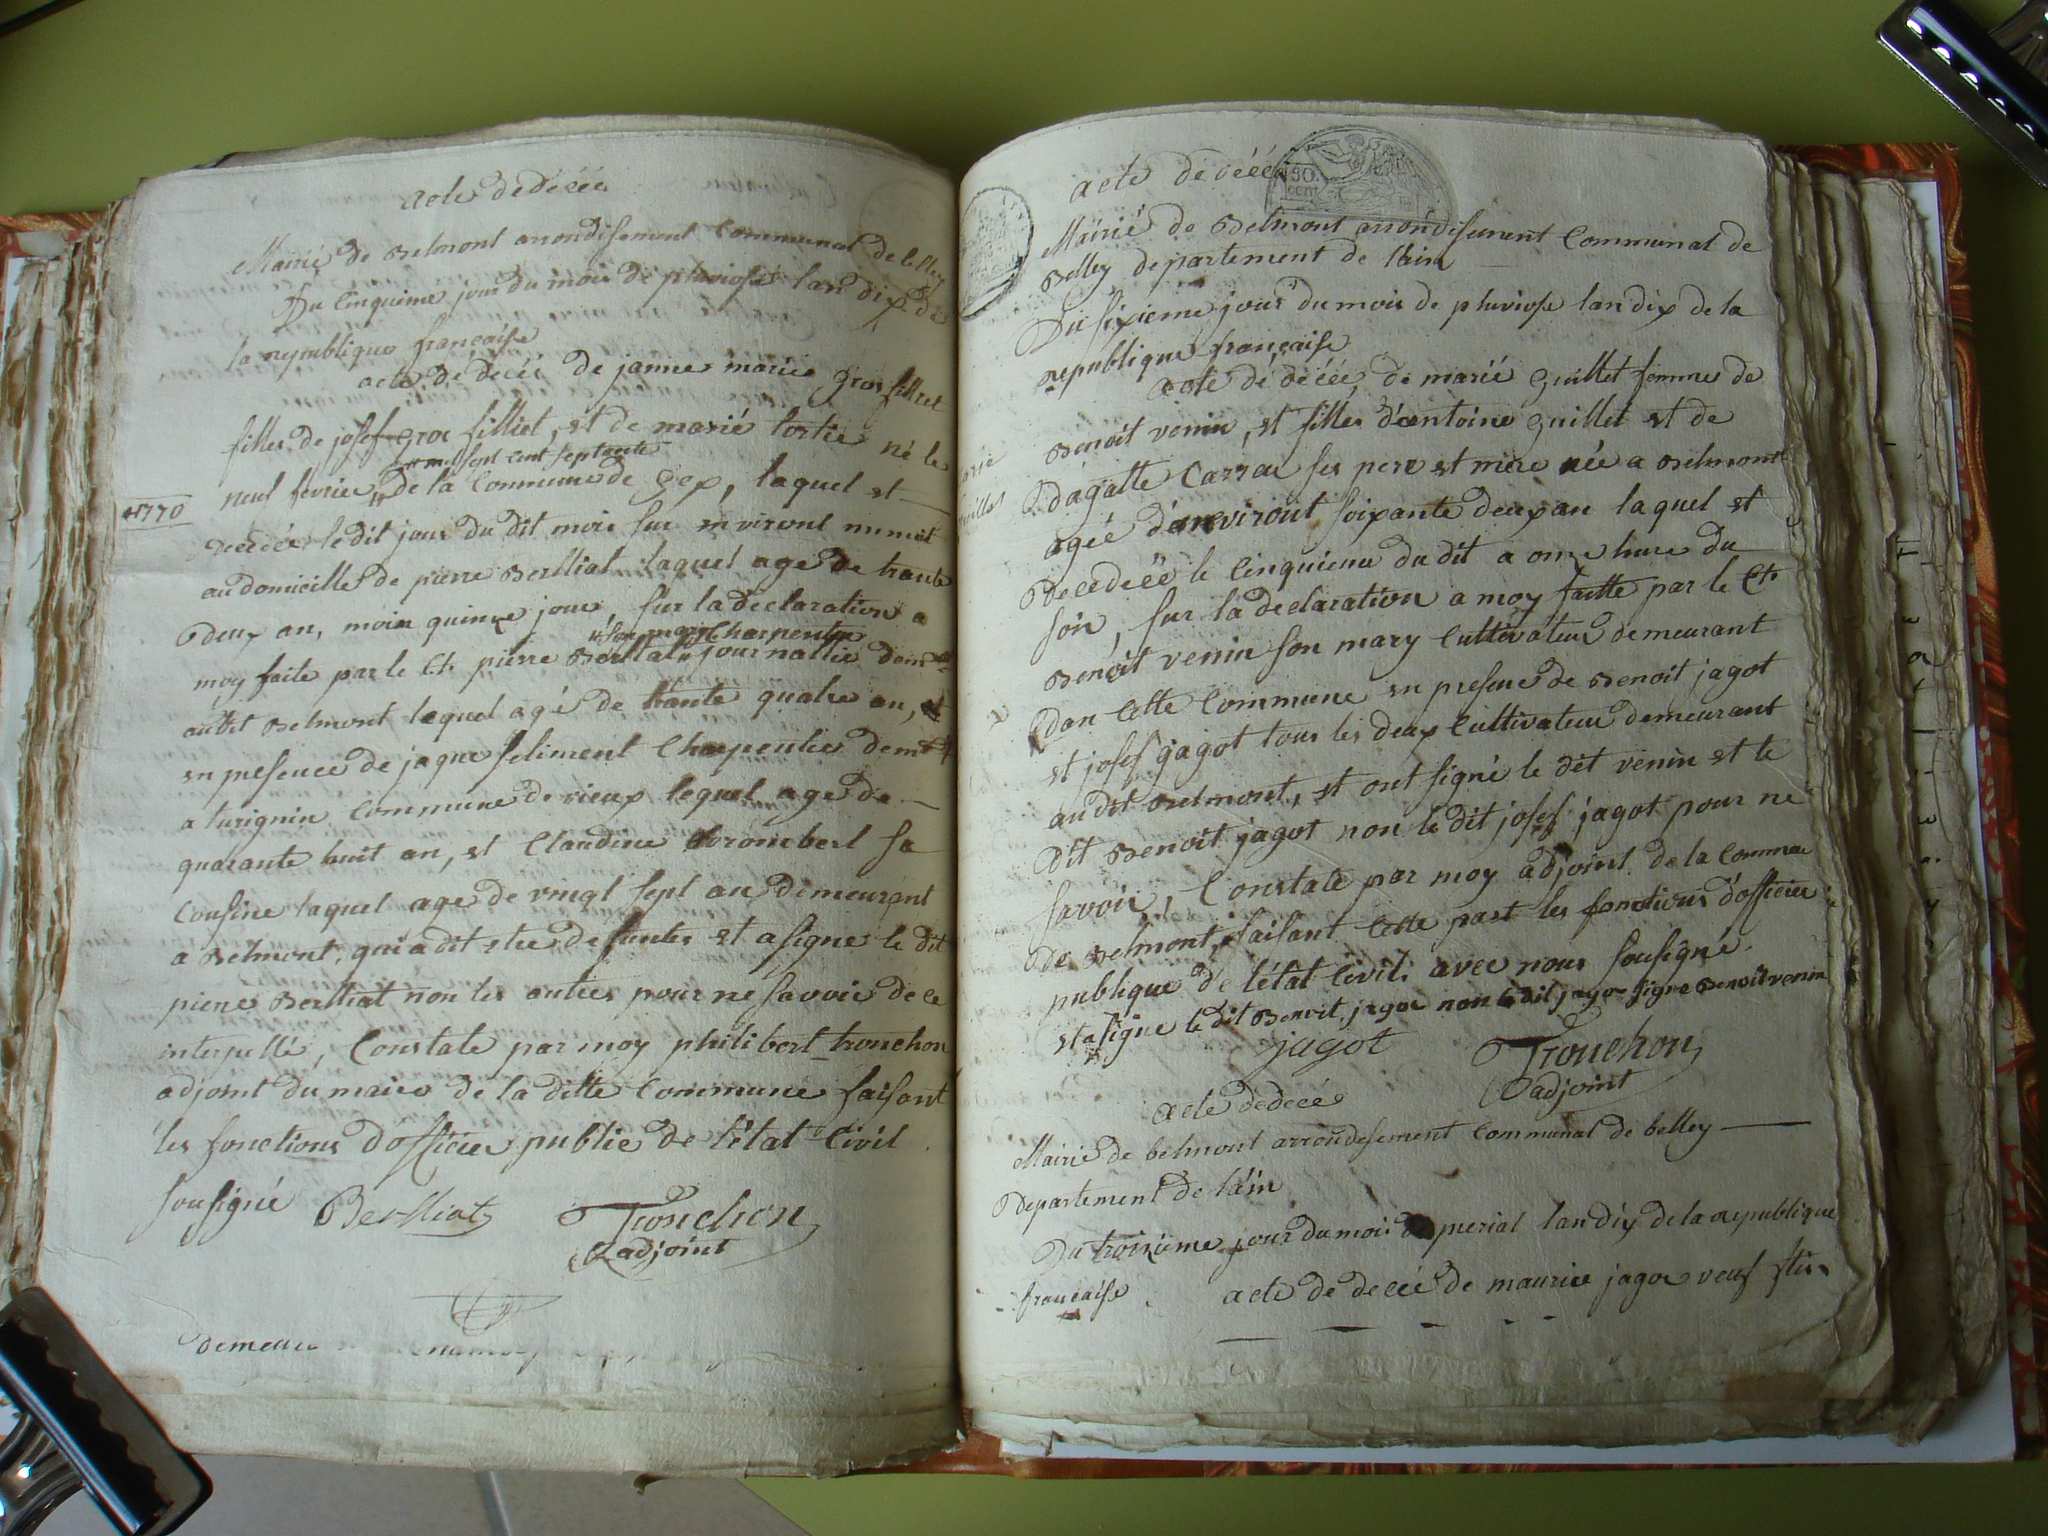 acte de décéé
Mairié de Belmont arrondisement Communal de belley
Du Cinquiéme jour du mois de pluviose lan dix de
la republique française
acte de décéé de janne mariée gros filliet
filles de josef gros filliet, et de marié tortie né le
mil sept cent septante
neuf fevrier de la Commune de gex, laquel et
+1770
decedéé le dit jour du dit mois sur environt minuit
au domicille de pierre Berlliat laquel age de trante
deux an, moin quinze jour, sur la declaration a
son mary Charpentier
moy faite par le Ct. pierre Berlliat journallié demt
audit Belmont lequel agé de trante quatre an, et
en presence de jaque feliment Charpentier demt
a lurignin Commune de vieux lequel age de
quarante huit an, et Claudine Brombert sa
Cousine laquel age de vingt sept an demeurant
a Belmont, qui a dit etre defuntes et a signe le dit
pierre Berlliat non les autres pour ne savoir de ce
interpellé, Constate par moy philibert tronchon
adjoint du maire de la ditte Commune faisant
les fonctions d'officier public de l'état Civil
sousigné Berlliat Tronchon
adjoint
demeur
acte de décéé
30. cent.
Mairié de Belmont arrondisement Communal de
Belley departement de l'ain
Du sixieme jour du mois de pluviose lan dix de la
republique française
acte de décéé de marié guillet femme de
Benoit venin, et filles d'entoine guillet et de
d'agatte Carrae ses pere et mere néé a Belmont
marie
guillet
agéé d'anviront soixante deux an laquel et
decedéé le Cinquieme du dit a onze hure du
soir, sur la declaration a moy faitte par le Ct.
Benoit venin son mary Cultivateur demeurant
dan Cette Commune en presence de Benoit jagot
et josef jagot tous les deux Cultivateur demeurant
au dit Belmont, et ont signé le dit venin et le
dit Benoit jagot non le dit josef jagot pour ne
savoir, Constate par moy adjoint de la Commune
de Belmont, faisant Cette part les fonctions d'officier
publique de l'état Civil avec nous sousigné.
et a signe le dit Benoit jagot non le dit jagot signe Benoit venin
jagot Tronchon
adjoint
acte de décéé
Mairié de belmont arrondisement Communal de belley
Departement de l'ain
Du troizieme jour du mois de perial lan dix de la republique
française acte de decéé de maurice jagot veuf